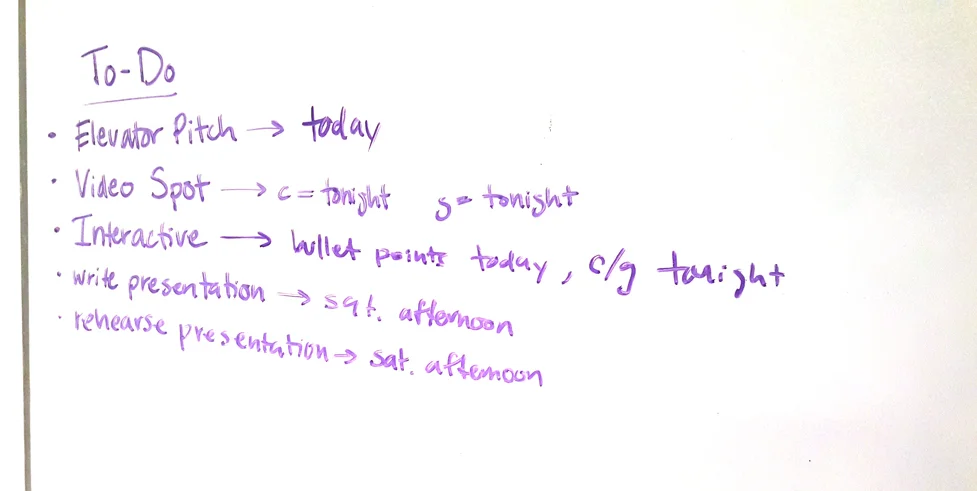 To-Do
• Elevator Pitch → today
• Video Spot → c = tonight g = tonight
• Interactive → bullet points today, c/g tonight
• write presentation → sat. afternoon
• rehearse presentation → sat. afternoon